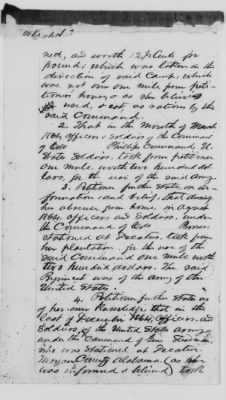 ned, and worth 12½ cents per
pound, which was taken in the
direction of said Camp, which
was not over one mile from peti-
tioners house, & as she believes
used, & eat, as rations by the
said Command.
2. That in the month of March
1864, officers & soldiers of the Command
of Col Phillips Command, U.
States Soldiers took from petitioner
one mule, worth two hundred dol-
lars, for the use of the said army.
3. Petitioner further states on in-
formation and belief, that during
her absence from home, in August
1864, officers and Soldiers, under
the Command of Col
stationed at Decatur, took from
her plantation for the use of the
said Command one mule worth
two hundred dollars. The said
Regiment was of the army of the
United States.
4. Petitioner further states as
of her own knowledge that in the
last of December 1864, officers, and
Soldiers, of the United States army
under the Command of Gen Steedman
who was stationed at Decatur
Morgan County Alabama (as she
was informed & believed) took